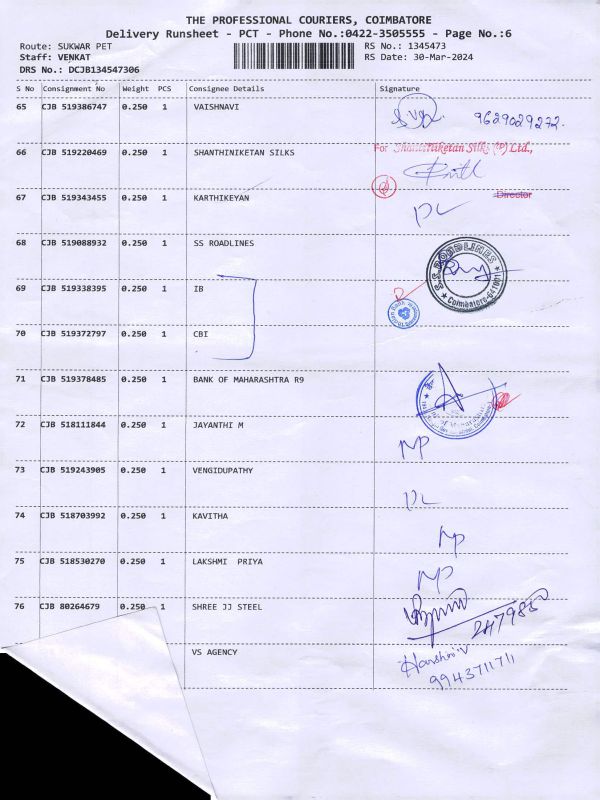 THE PROFESSIONAL COURIERS, COIMBATORE
Delivery Runsheet - PCT - Phone No.:0422-3505555 - Page No.:6
Route: SUKWAR PET RS No.: 1345473
Staff: VENKAT RS Date: 30-Mar-2024
DRS No.: DCJB134547306
S No Consignment No Weight PCS Consignee Details Signature
65 CJB 519386747 0.250 1 VAISHNAVI 9629029272.
66 CJB 519220469 0.250 1 SHANTHINIKETAN SILKS For Shanthiniketan Silks (P) Ltd.,
Director
67 CJB 519343455 0.250 1 KARTHIKEYAN DL
68 CJB 519088932 0.250 1 SS ROADLINES S.S. ROADLINES Coimbatore-641001
69 CJB 519338395 0.250 1 IB
70 CJB 519372797 0.250 1 CBI
71 CJB 519378485 0.250 1 BANK OF MAHARASHTRA R9
72 CJB 518111844 0.250 1 JAYANTHI M NP
73 CJB 519243905 0.250 1 VENGIDUPATHY DL
74 CJB 518703992 0.250 1 KAVITHA NP
75 CJB 518530270 0.250 1 LAKSHMI PRIYA NP
76 CJB 80264679 0.250 1 SHREE JJ STEEL
VS AGENCY Harshini.V
9943711711